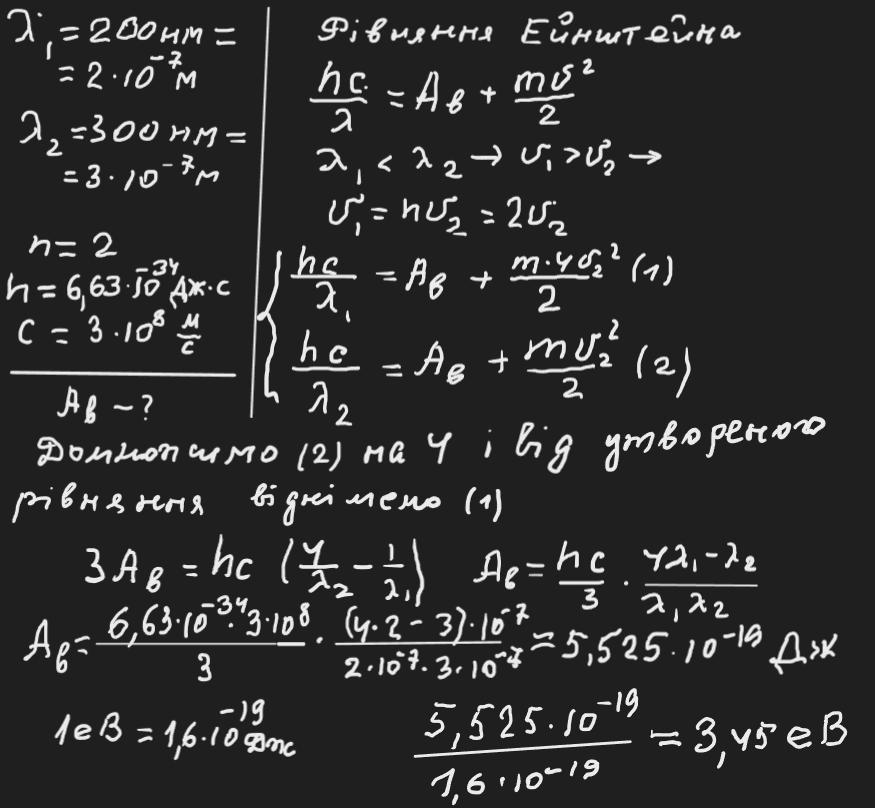 λ₁ = 200 нм =
= 2·10⁻⁷ м
λ₂ = 300 нм =
= 3·10⁻⁷ м
n = 2
h = 6,63·10⁻³⁴ Дж·с
c = 3·10⁸ м/с
Aв – ?
Рівняння Ейнштейна
hc/λ = Aв + mυ²/2
λ₁ < λ₂ → υ₁ > υ₂ →
υ₁ = nυ₂ = 2υ₂
{ hc/λ₁ = Aв + m·4υ₂²/2 (1)
hc/λ₂ = Aв + mυ₂²/2 (2)
Домножимо (2) на 4 і від утвореного
рівняння віднімемо (1)
3Aв = hc (4/λ₂ – 1/λ₁) Aв = hc/3 · (4λ₁ – λ₂)/(λ₁λ₂)
Aв = (6,63·10⁻³⁴·3·10⁸)/3 · ((4·2 – 3)·10⁻⁷)/(2·10⁻⁷·3·10⁻⁷) = 5,525·10⁻¹⁹ Дж
1еВ = 1,6·10⁻¹⁹ Дж (5,525·10⁻¹⁹)/(1,6·10⁻¹⁹) = 3,45 еВ